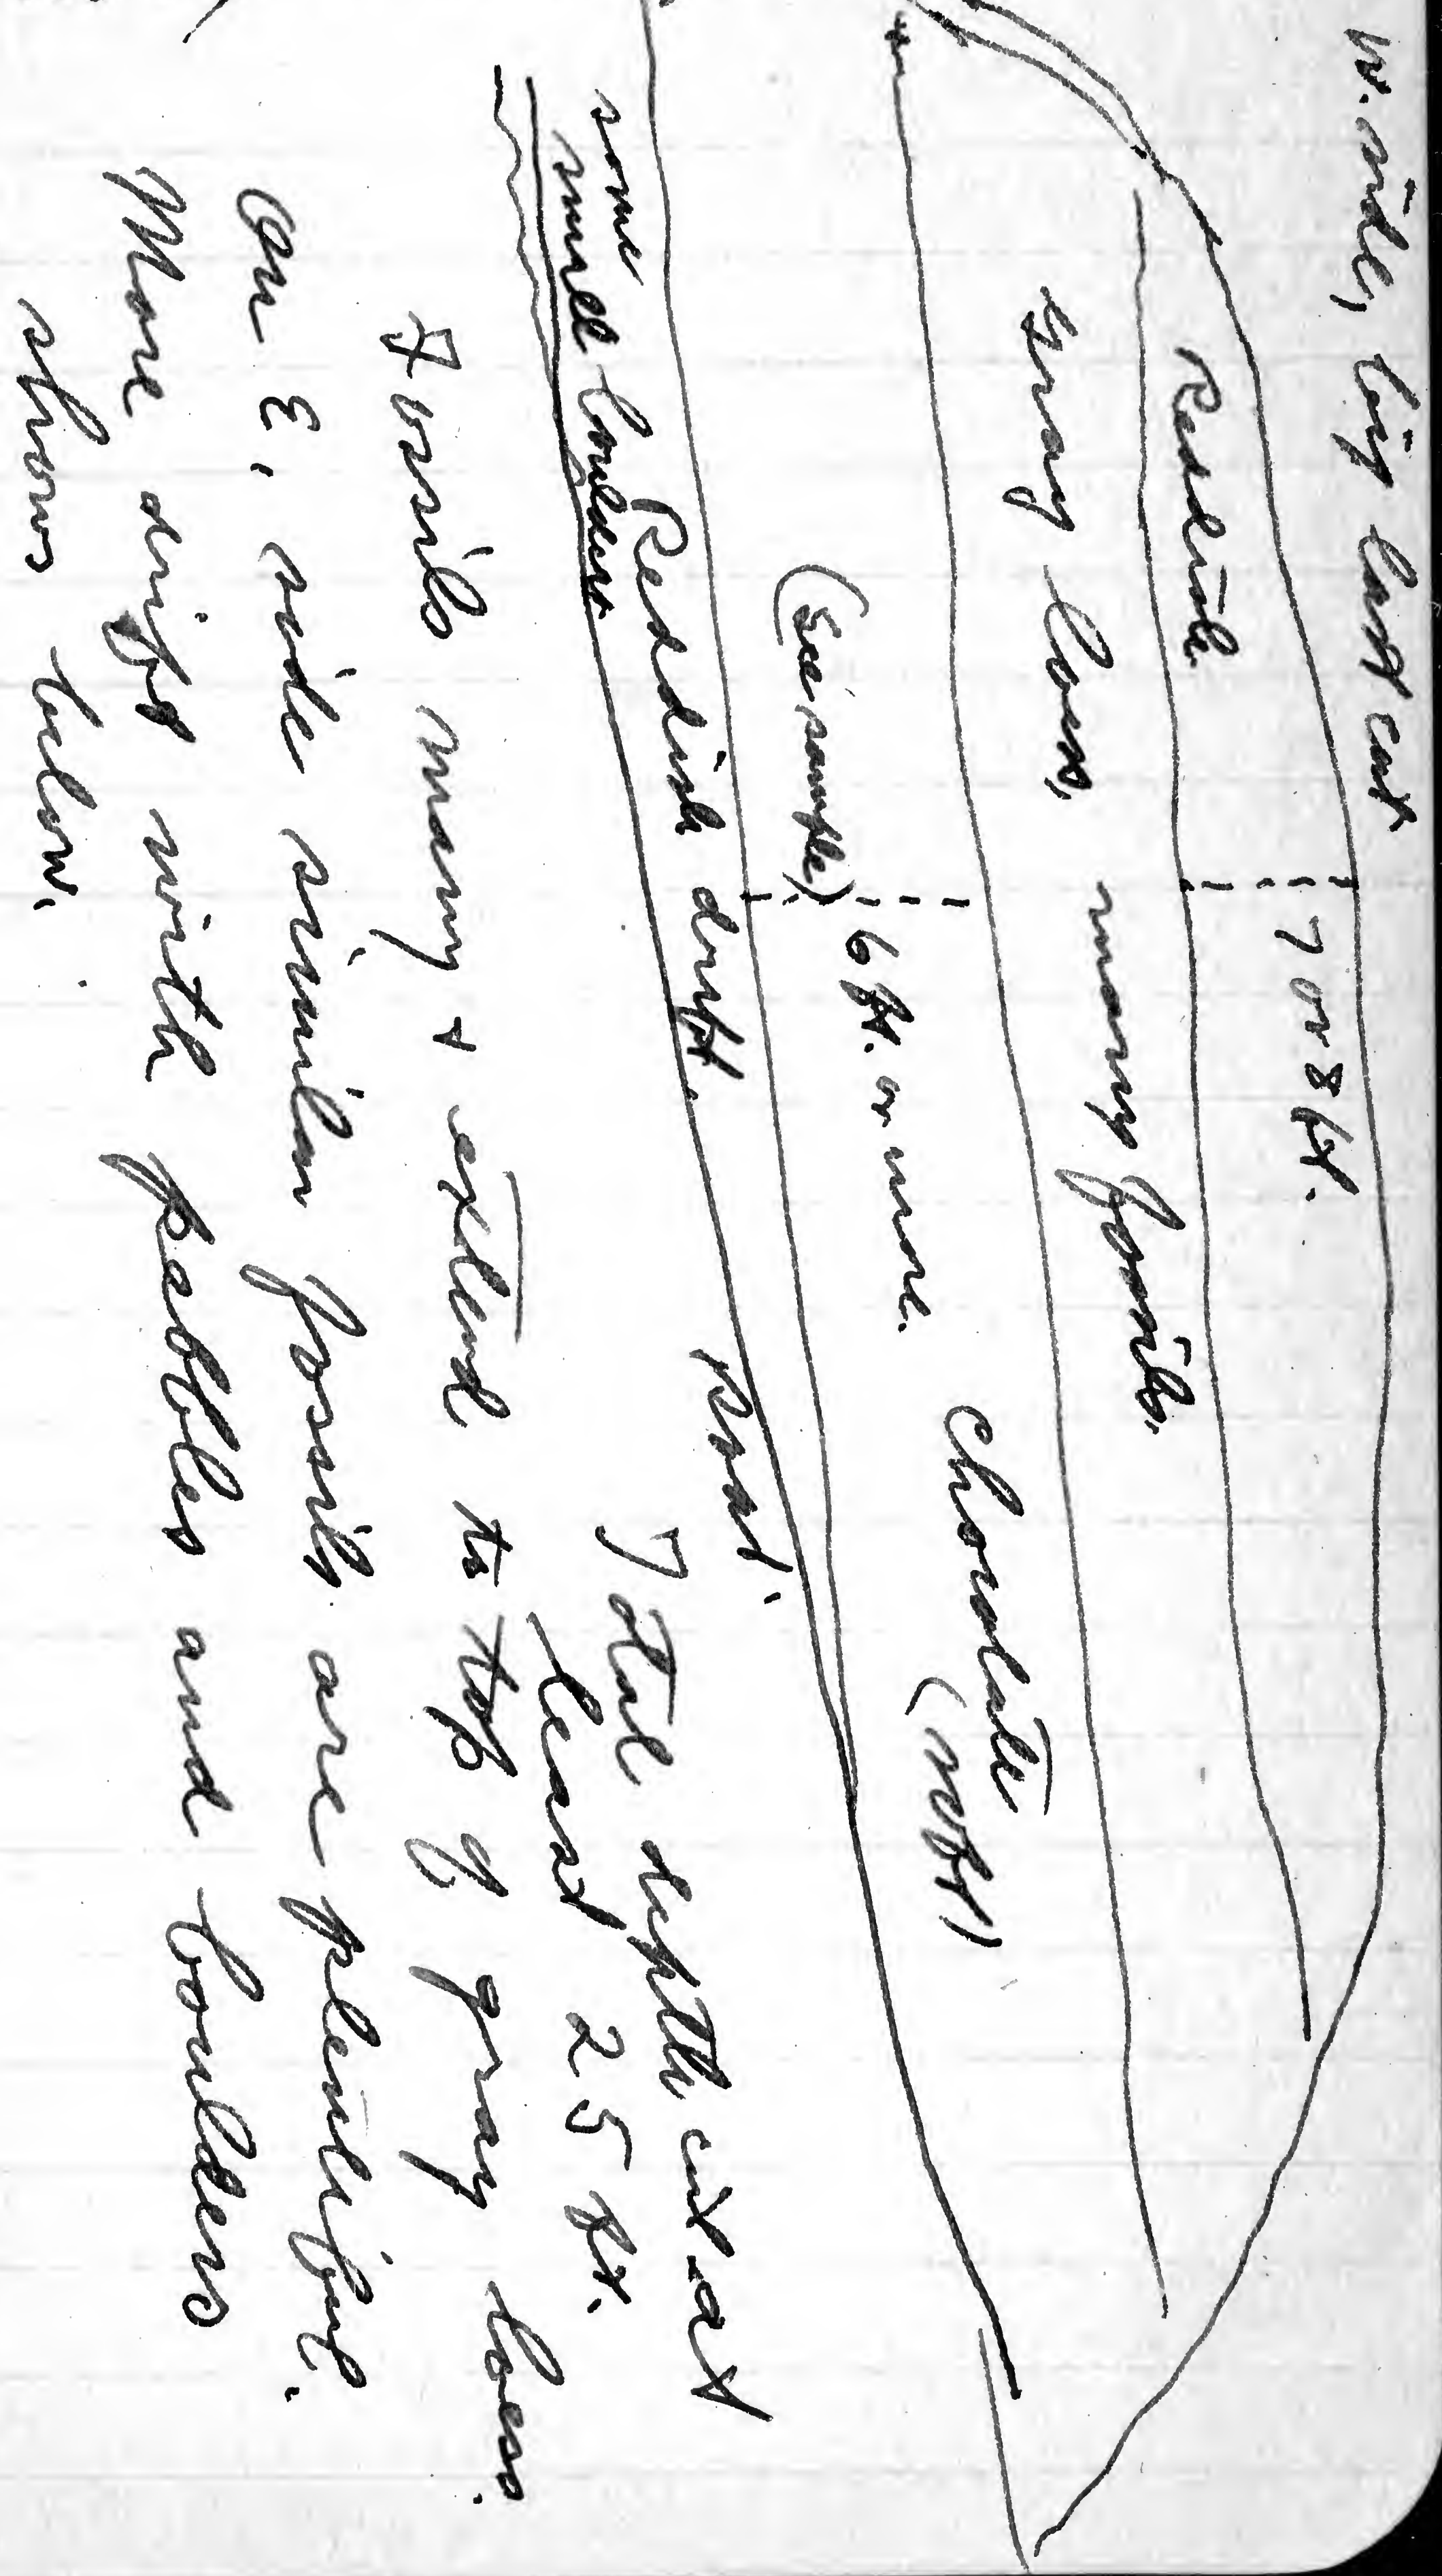 W. side, big last cut
7 or 8 ft.
Reddish
Gray loess, many fossils.
Chocolate
(soft)
6 ft. or more.
(See sample)
Reddish drift.
some
small boulders
road.
Total depth cut at
least 25 ft.
Fossils many + extend to top of gray loess.
On E. side similar fossils are plentiful.
More drift with pebbles and boulders
shows below.